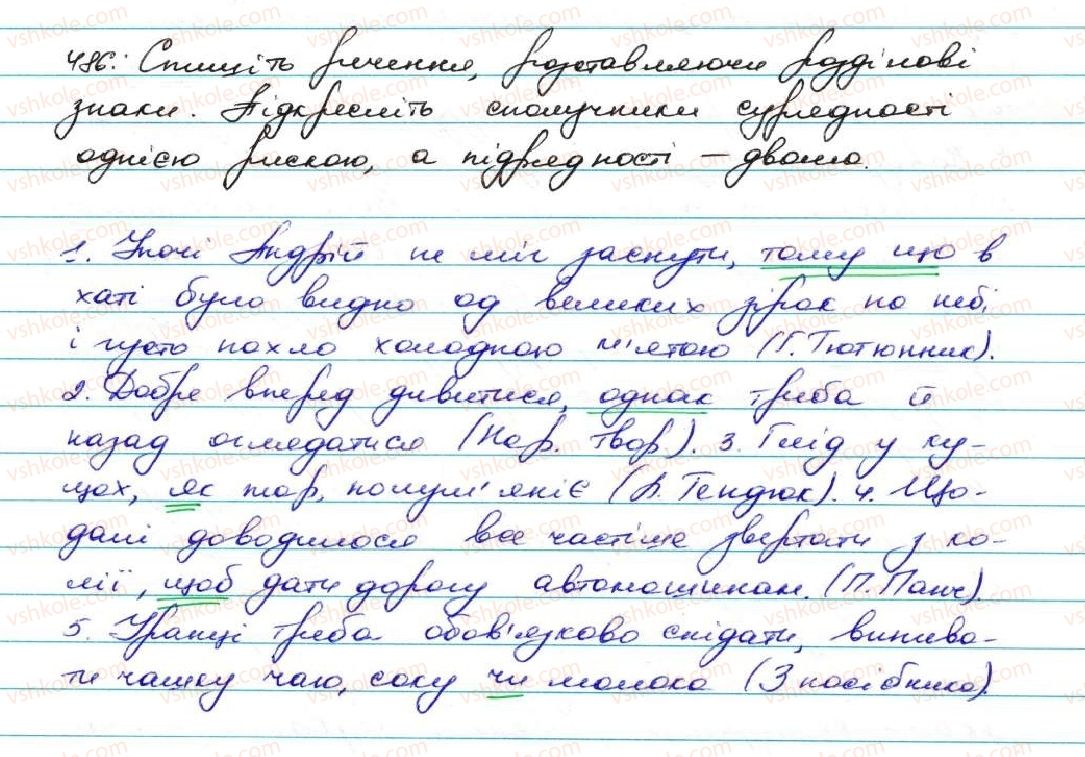 486. Спишіть речення, розставляючи розділові
знаки. Підкресліть сполучники сурядності
однією рискою, а підрядності – двома.
1. Уночі Андрій не міг заснути, тому що в
хаті було видно од великих зірок на небі,
і густо пахло холодною м'ятою (Г. Тютюнник).
2. Добре вперед дивитися, однак треба й
назад оглядатися (Нар. твор.). 3. Глід у ку-
щах, як жар, полум'яніє (Л. Тендюк). 4. Що-
далі доводилося все частіше звертати з ко-
лії, щоб дати дорогу автомашинам. (П. Панч).
5. Уранці треба обов'язково снідати, випива-
ти чашку чаю, соку чи молока (З посібника).